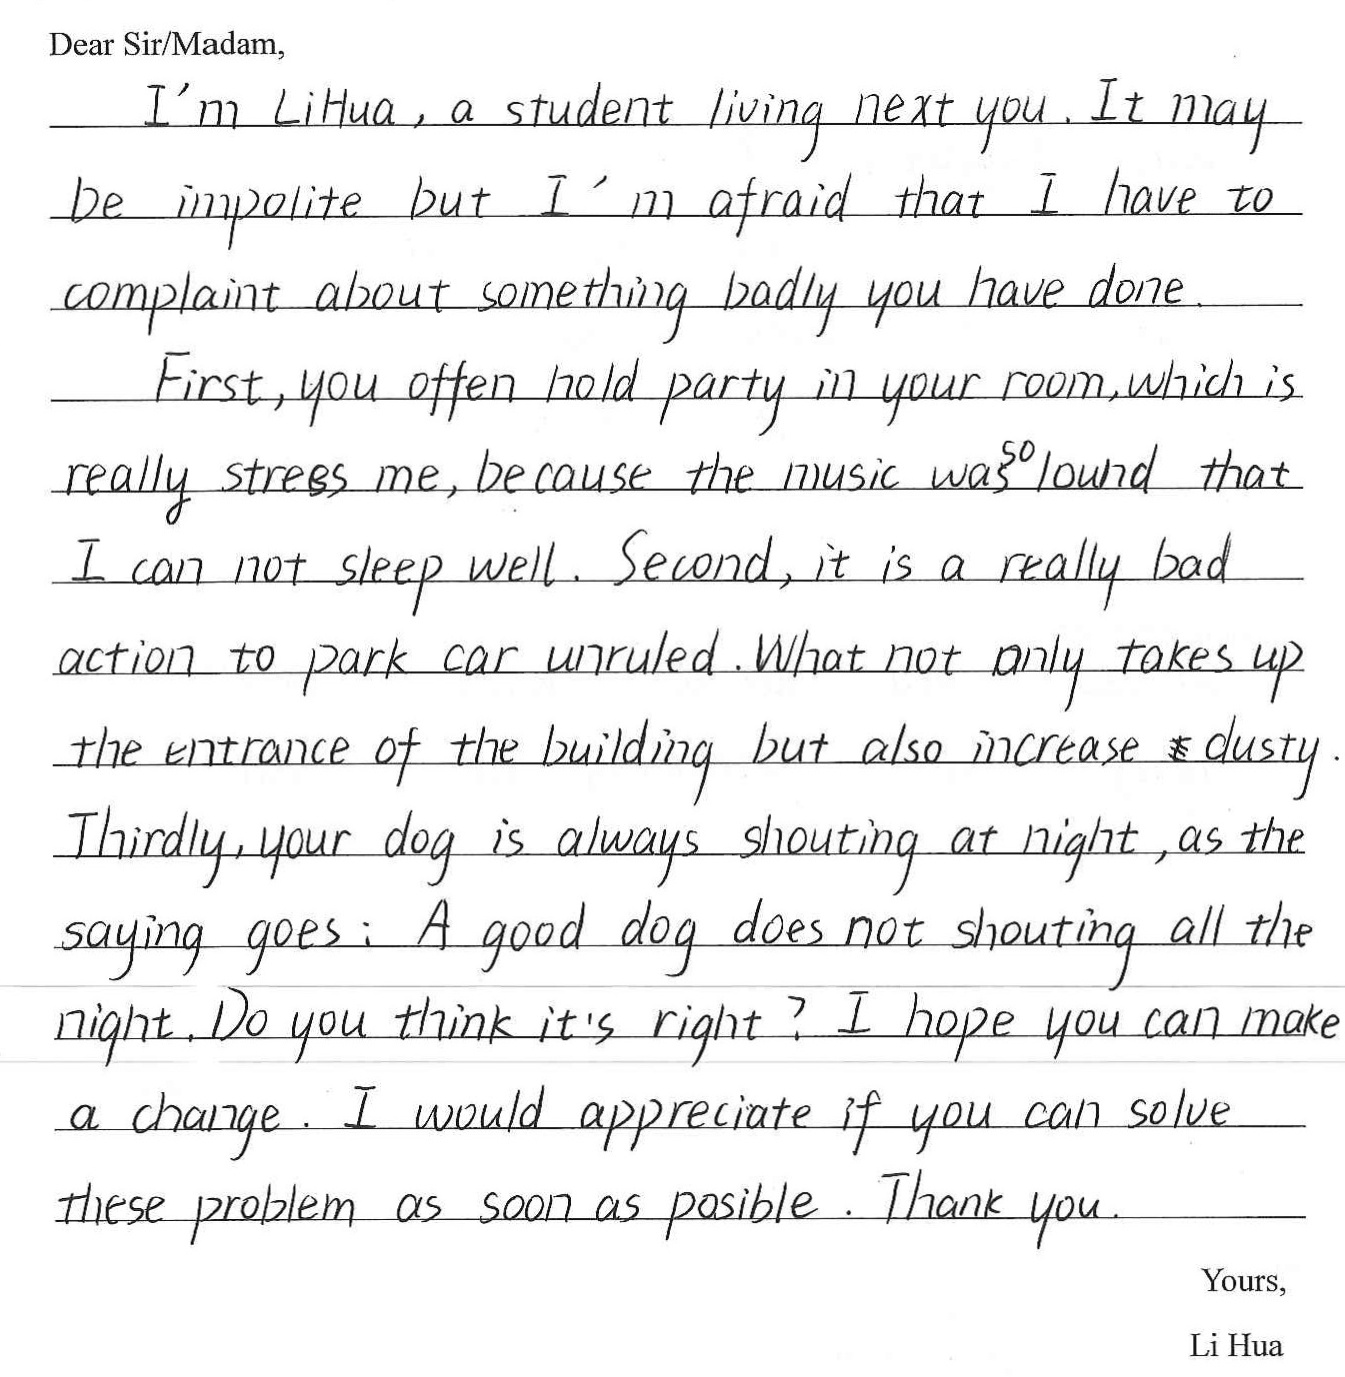 Dear Sir/Madam,
I'm LiHua, a student living next you. It may
be impolite but I'm afraid that I have to
complaint about something badly you have done.
First, you offen hold party in your room, which is
really stress me, because the music was so lound that
I can not sleep well. Second, it is a really bad
action to park car unruled. What not only takes up
the entrance of the building but also increase dusty.
Thirdly, your dog is always shouting at night, as the
saying goes: A good dog does not shouting all the
night. Do you think it's right? I hope you can make
a change. I would appreciate if you can solve
these problem as soon as posible. Thank you.
Yours,
Li Hua